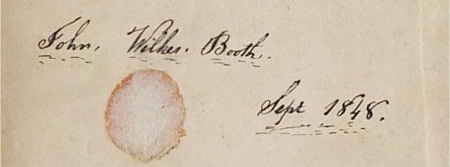 John, Wilkes. Booth.
Sept 1848.